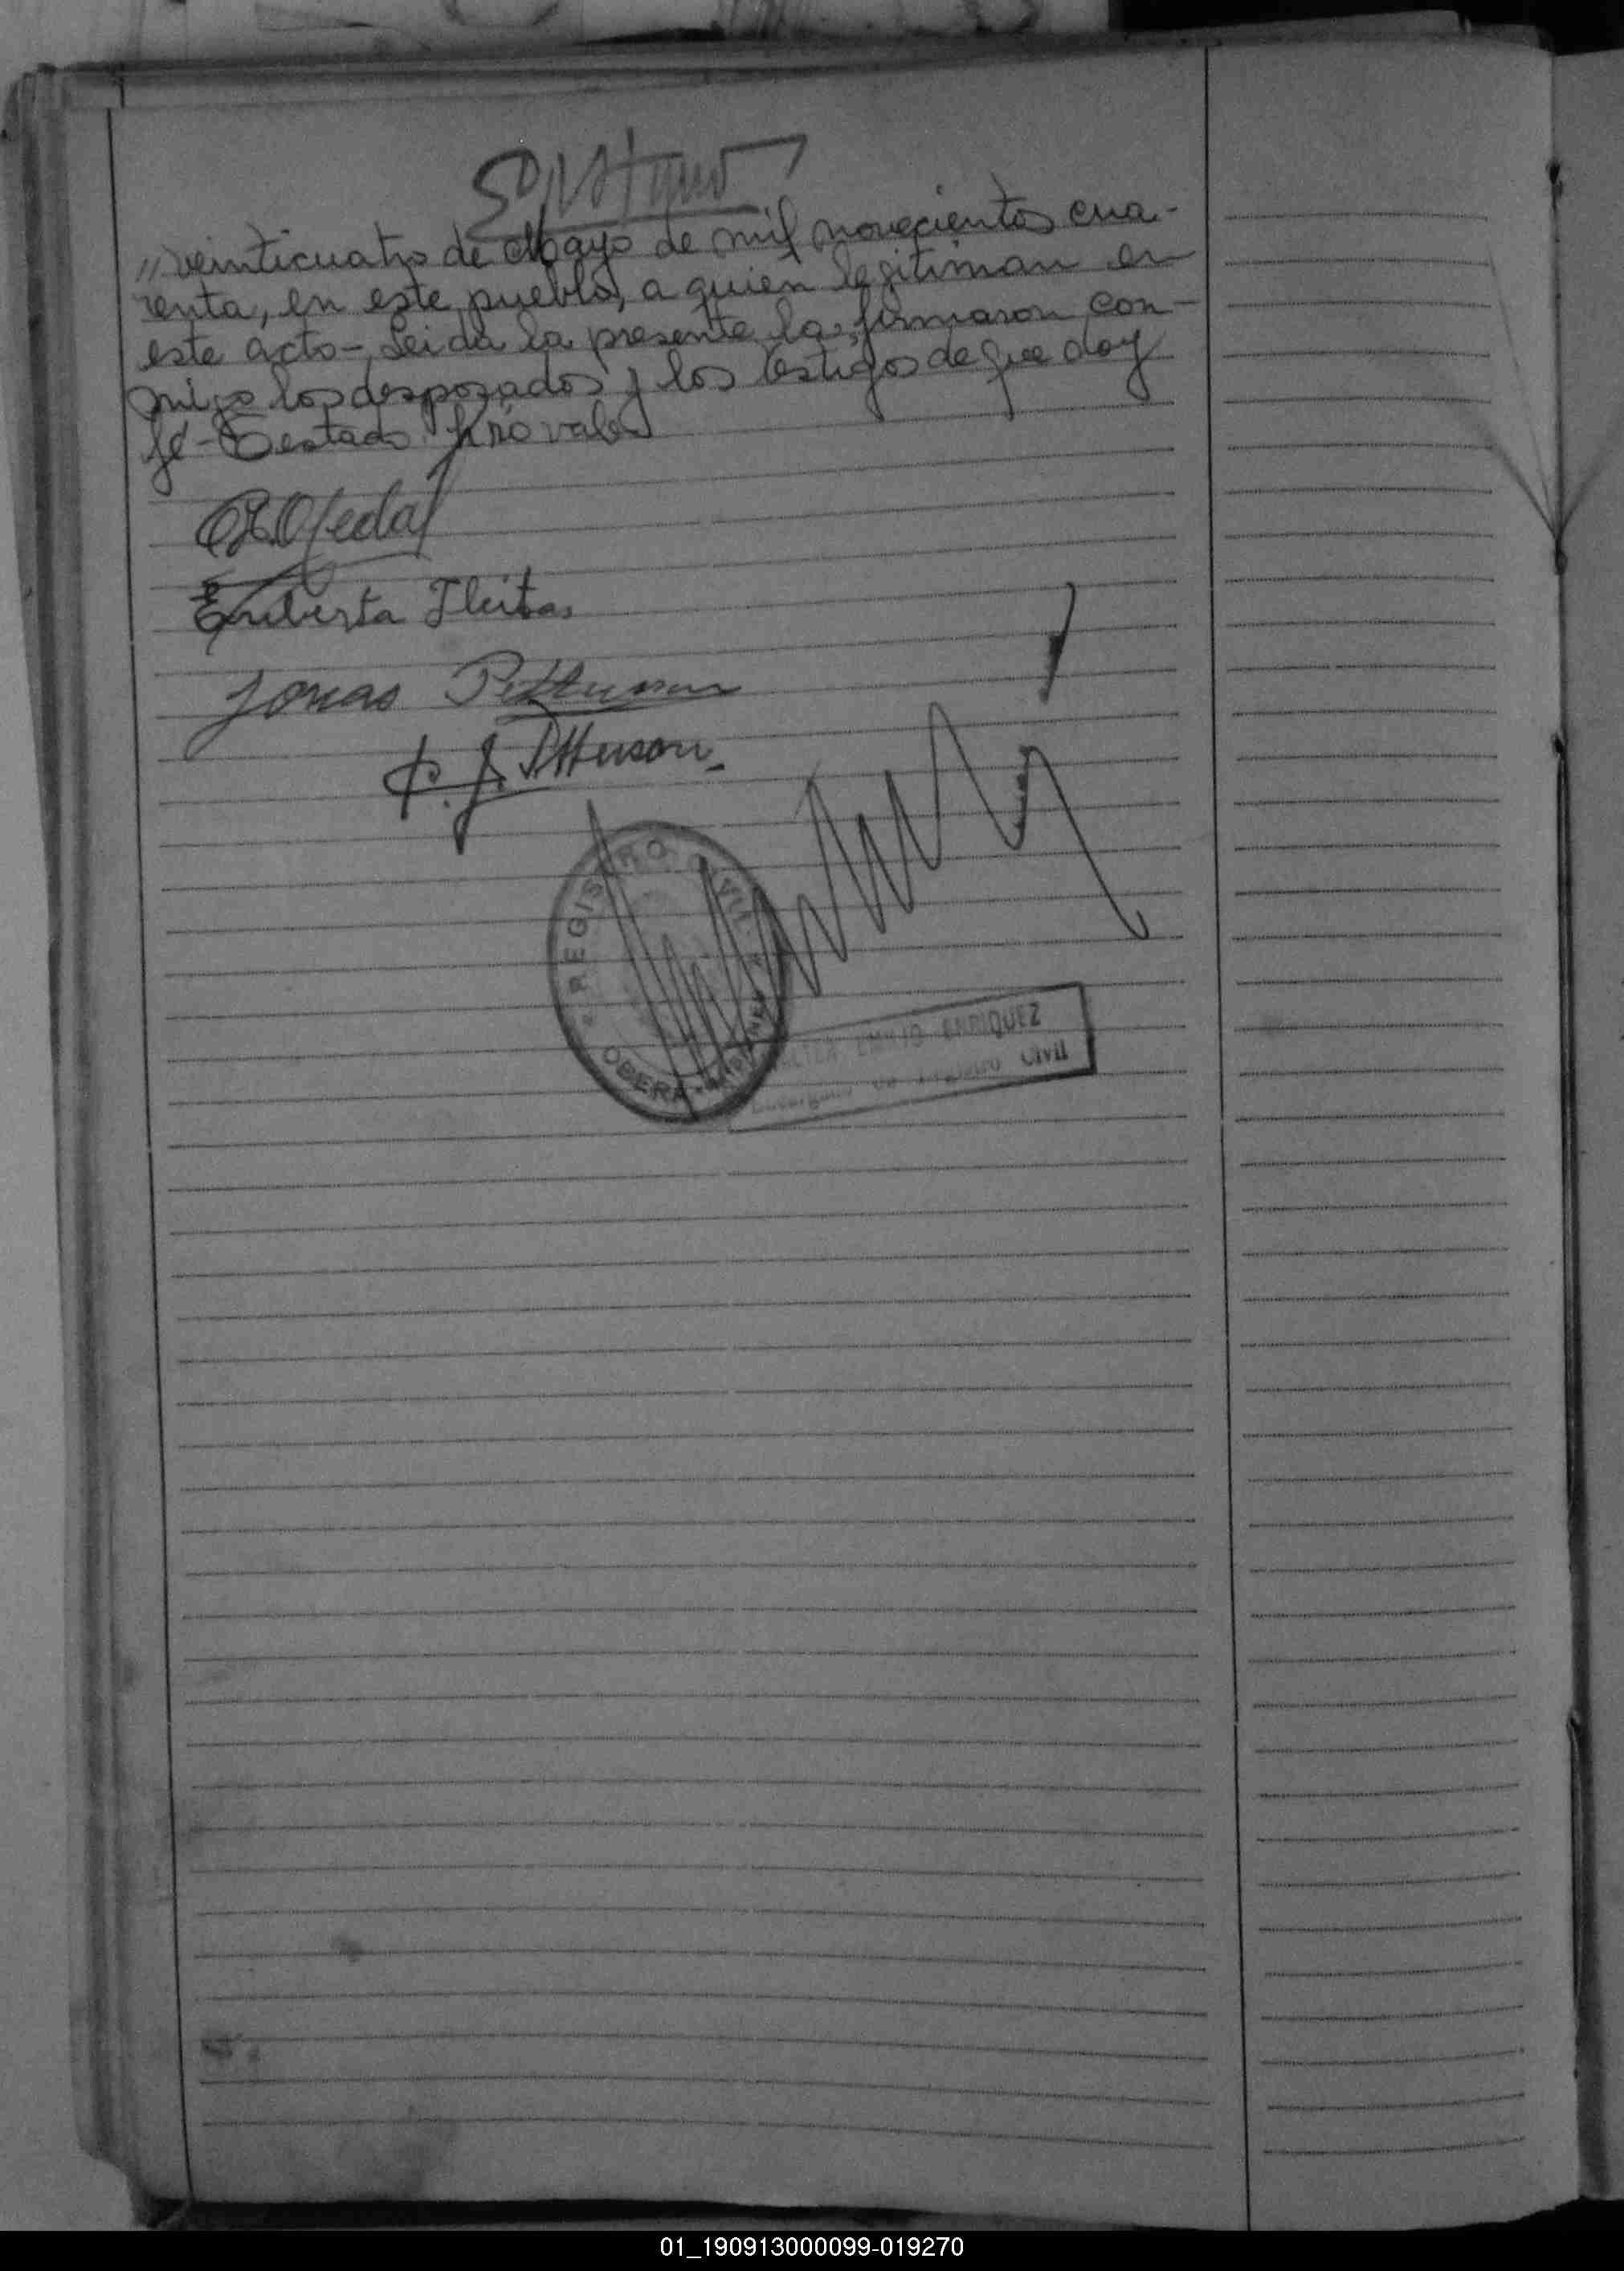 "veinticuatro de Mayo de mil novecientos cua-
renta, en este pueblo, a quien legitiman en
este acto - Leida la presente la firmaron con-
migo los desposados y los testigos de que doy
fé - Testado: h no vale
Ojeda
Eriberta Fleitas
Jonas Pettersson
P. J. Pettersson.
REGISTRO CIVIL
OBERA - MISIONES
EMILIO ENRIQUEZ
Encargado de Registro Civil
01_190913000099-019270